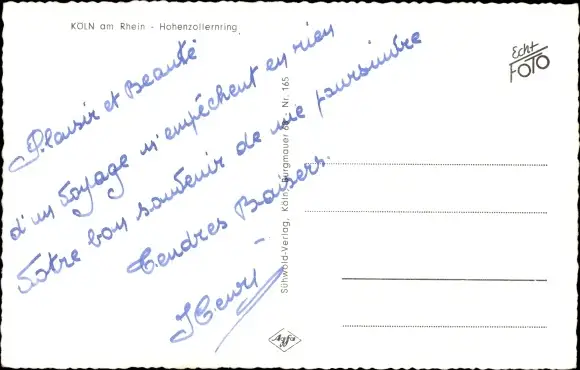 KÖLN am Rhein - Hohenzollernring
Echt
FOTO
Plaisir et Beauté
d'un Voyage n'empêchent en rien
Votre bon souvenir de me poursuivre
Tendres Baisers.
Henri
Sühwold-Verlag, Köln, Burgmauer 68 Nr. 165
Agfa